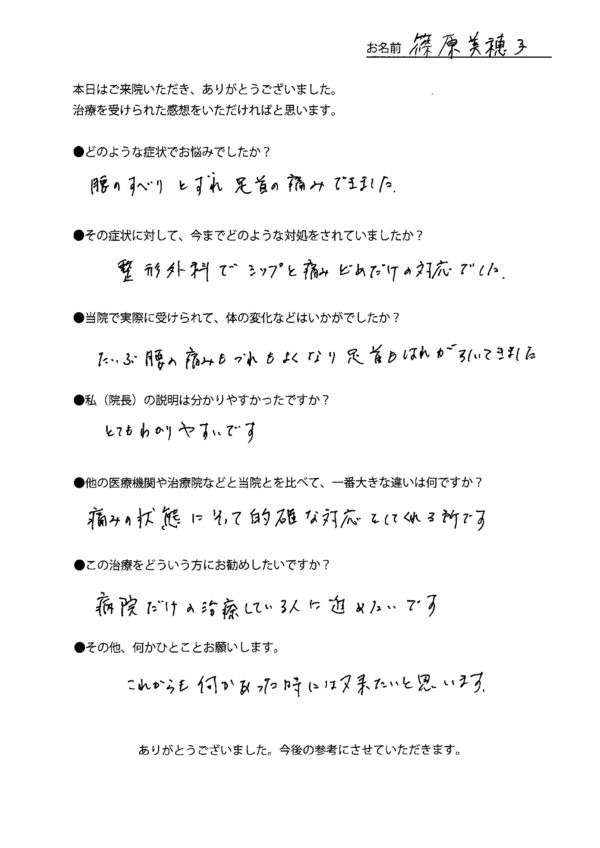 お名前 篠原美穂子
本日はご来院いただき、ありがとうございました。
治療を受けられた感想をいただければと思います。
●どのような症状でお悩みでしたか？
腰のすべりとずれ 足首の痛みできました.
●その症状に対して、今までどのような対処をされていましたか？
整形外科でシップと痛みどめだけの対応でした.
●当院で実際に受けられて、体の変化などはいかがでしたか？
だいぶ腰の痛みもづれもよくなり足首もはれが引いてきました
●私（院長）の説明は分かりやすかったですか？
とてもわかりやすいです
●他の医療機関や治療院などと当院とを比べて、一番大きな違いは何ですか？
痛みの状態にそって的確な対応をしてくれる所です
●この治療をどういう方にお勧めしたいですか？
病院だけの治療している人に進めたいです
●その他、何かひとことお願いします。
これからも何かあった時には又来たいと思います.
ありがとうございました。今後の参考にさせていただきます。